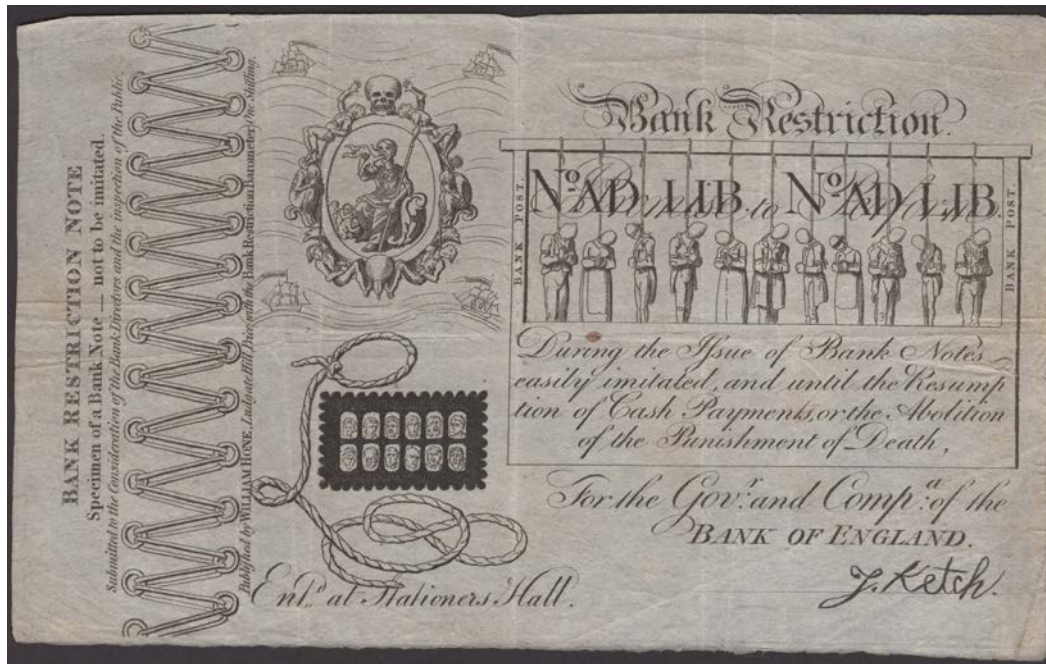 BANK RESTRICTION NOTE
Specimen of a Bank Note — not to be imitated.
Submitted to the Consideration of the Bank Directors and the inspection of the Public.
Published by WILLIAM HONE, Ludgate Hill Price, with the Bank Restriction Barometer, One Shilling.
Bank Restriction.
BANK POST.
No. AD. LIB. to No. AD. LIB.
BANK POST.
During the Issue of Bank Notes
easily imitated, and until the Resump
tion of Cash Payments, or the Abolition
of the Punishment of Death,
For the Govr. and Compa. of the
BANK OF ENGLAND.
J. Ketch.
Entd. at Stationers Hall.